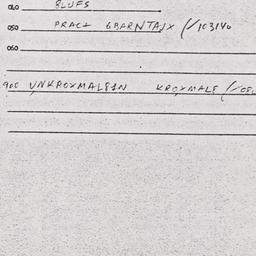 040 BLUFS
050 PRACZ GBARNTAJX (/103140
060
900 VNKROXMALSIN KROXMALF (/